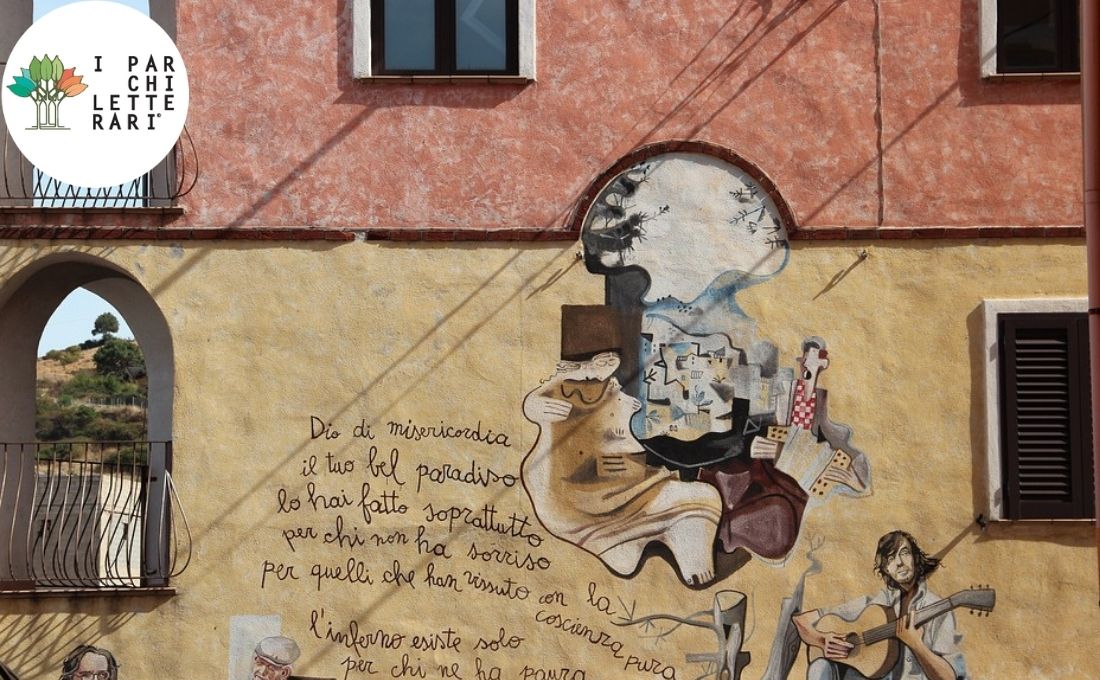 I PAR
CHI
LETTE
RARI®
Dio di misericordia
il tuo bel paradiso
lo hai fatto soprattutto
per chi non ha sorriso
per quelli che han vissuto con la
coscienza pura
l'inferno esiste solo
per chi ne ha paura